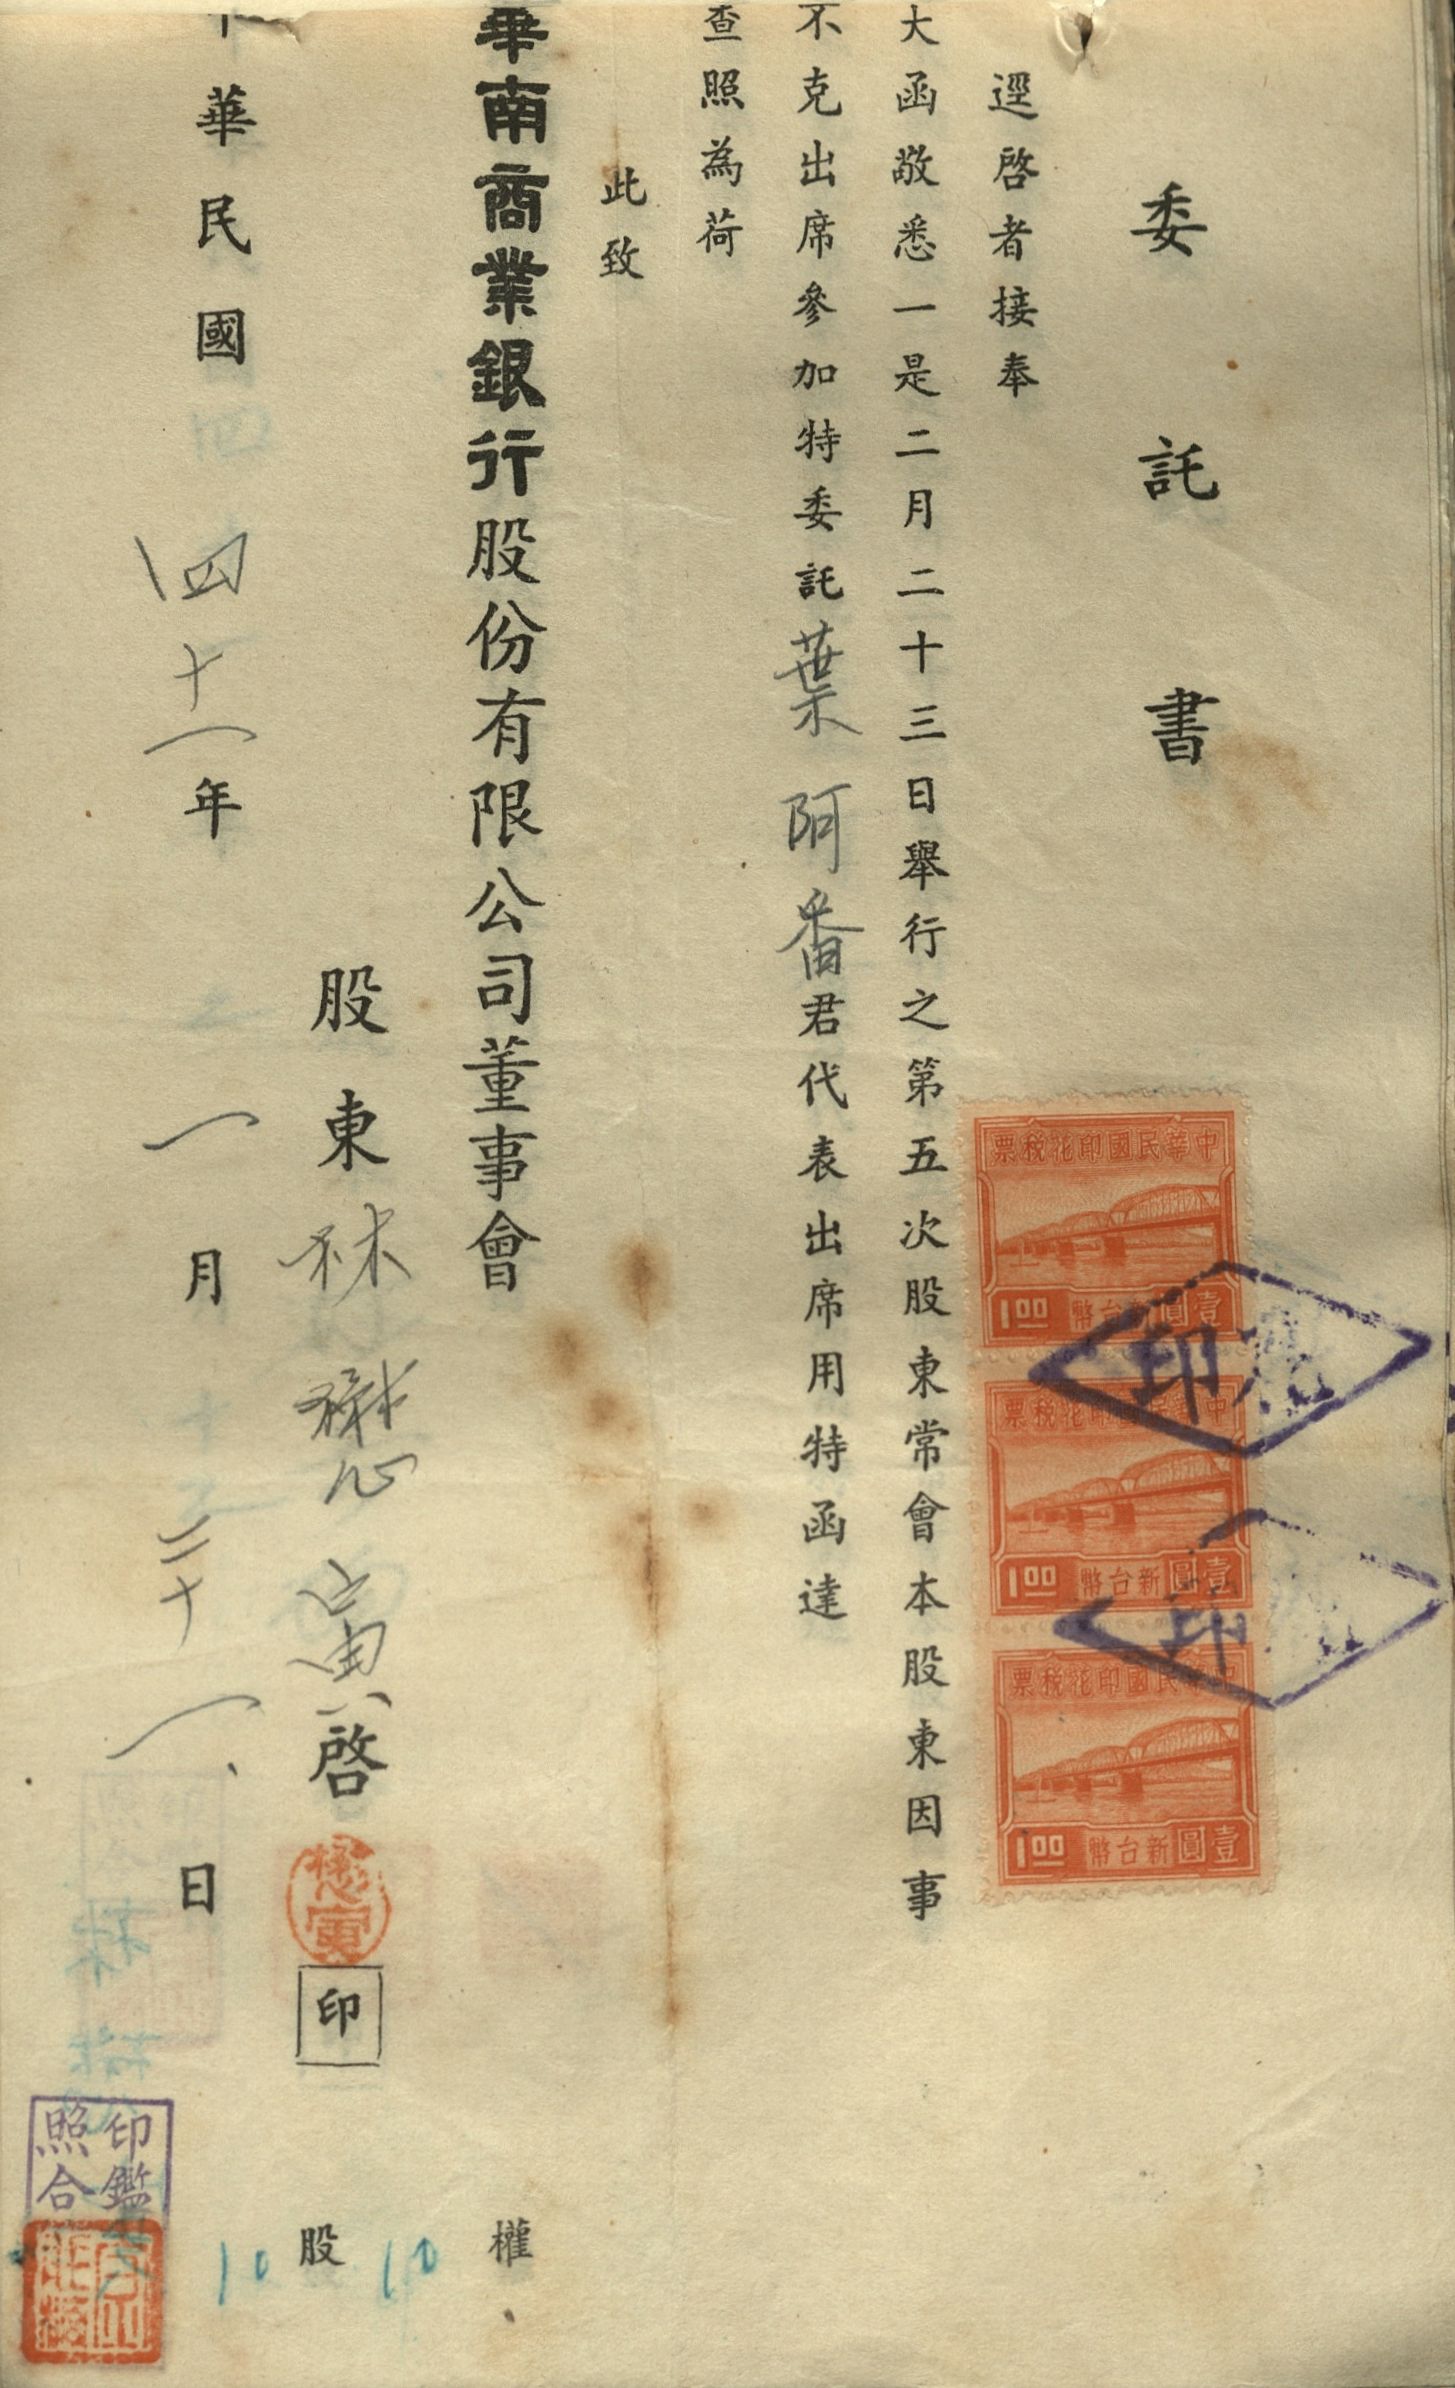 委託書
逕啓者接奉
大函敬悉一是二月二十三日舉行之第五次股東常會本股東因事
不克出席參加特委託葉阿番君代表出席用特函達
查照為荷
此致
華南商業銀行股份有限公司董事會
股東林懋寅啓
懋寅
印
中華民國四十一年一月二十一日
權
股 10
10
印鑑
照合
中華民國印花稅票
1.00 壹圓新台幣
中華民國印花稅票
1.00 壹圓新台幣
中華民國印花稅票
1.00 壹圓新台幣
印
印